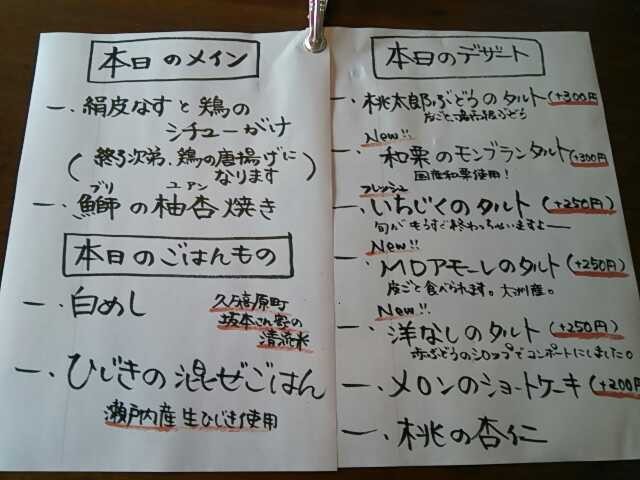 本日のメイン
一、絹皮なすと鶏の
シチューがけ
(終了次第、鶏の唐揚げに
なります)
ブリ ユアン
一、鰤の柚杏焼き
本日のごはんもの
一、白めし
久万高原町
坂本さん家の
清流米
一、ひじきの混ぜごはん
瀬戸内産生ひじき使用
本日のデザート
一、桃太郎ぶどうのタルト(+300円
皮ごと
ぶどう
New!!
一、和栗のモンブランタルト(+300円
国産和栗使用!
フレッシュ
一、いちじくのタルト(+250円)
旬がもうすぐ終わっちゃいますよー
New!!
一、MOアモーレのタルト(+250円)
皮ごと食べられます。大洲産。
New!!
一、洋なしのタルト(+250円)
赤ぶどうのシロップでコンポートにしました。
一、メロンのショートケーキ(+200円
一、桃の杏仁